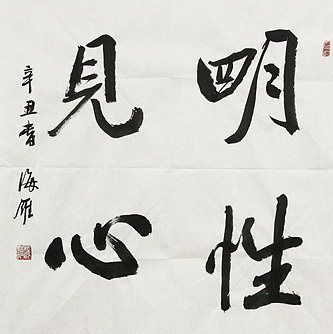 明性
見心
辛丑書
海雁